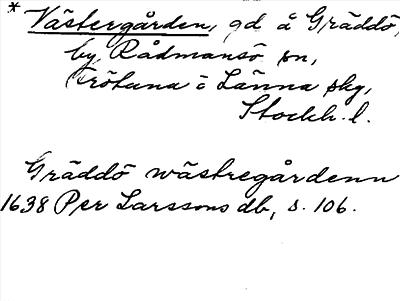 * Västergården, gd å Gräddö,
by, Rådmansö sn,
Frötuna o Länna skg,
Stockh. l.
Gräddö wästregårdenn
1638 Per Larssons db, s. 106.